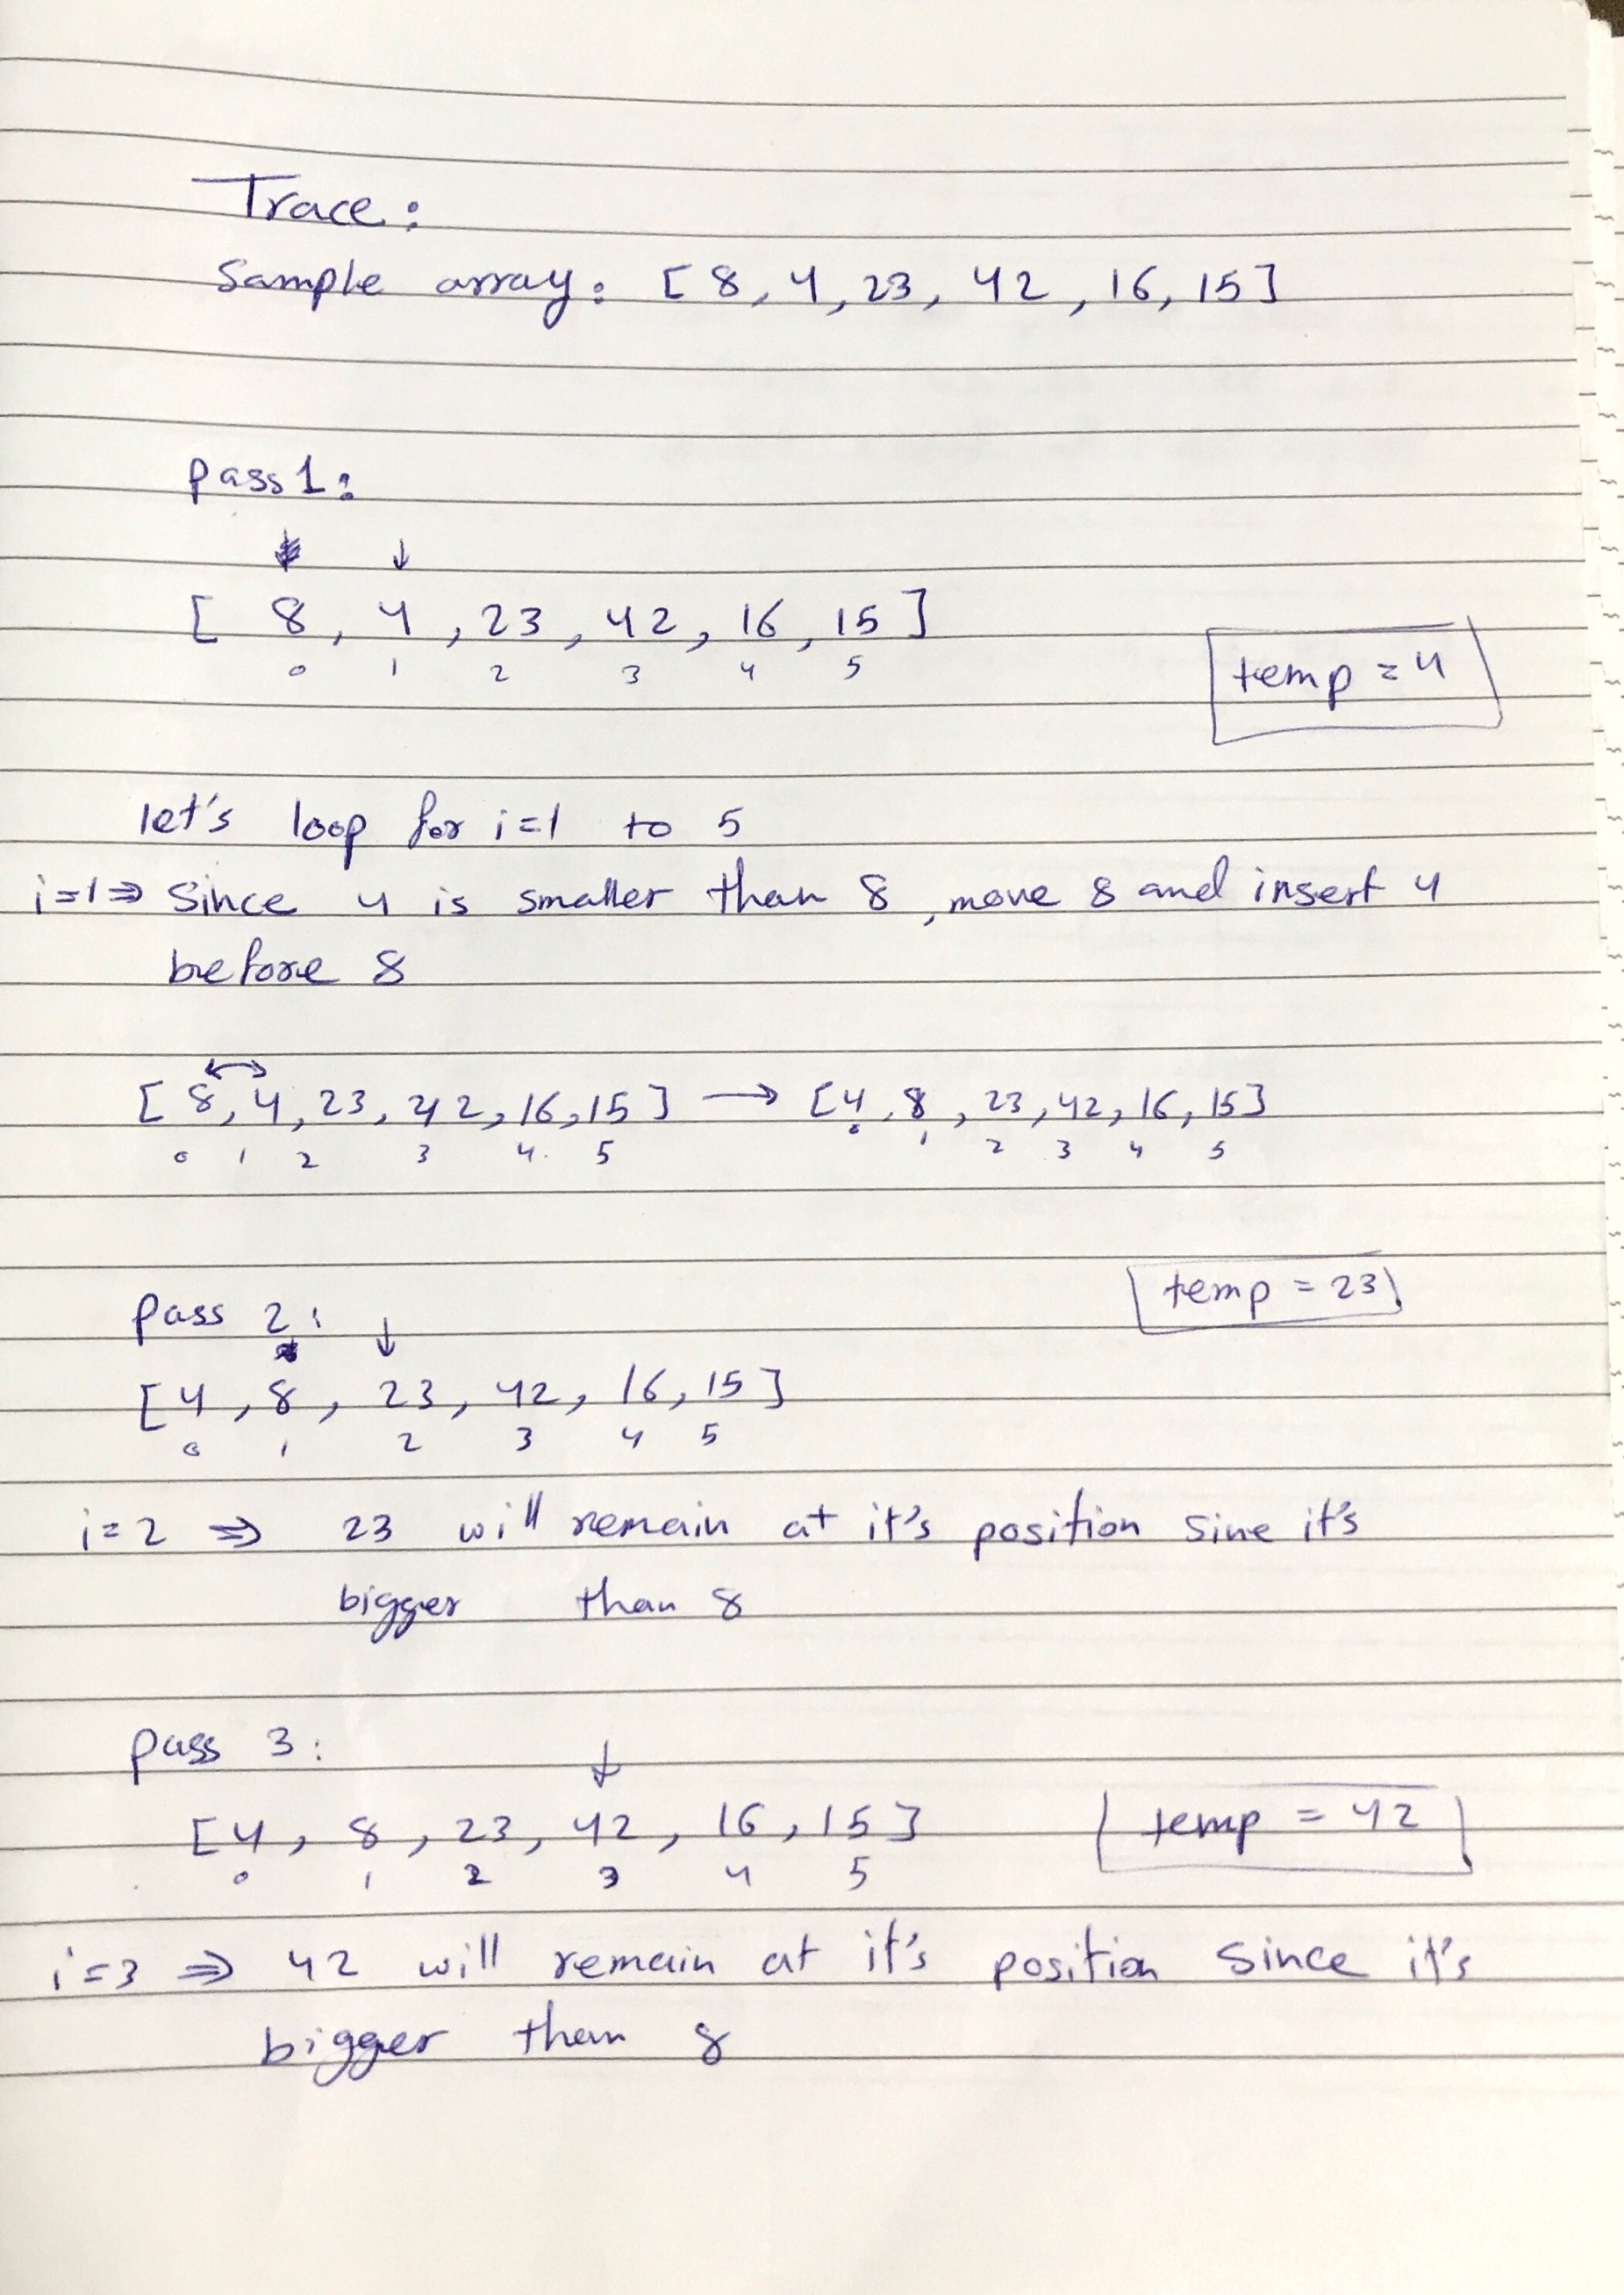 Trace:
Sample array: [ 8, 4, 23, 42, 16, 15 ]
pass 1:
↓
[ 8, 4, 23, 42, 16, 15 ]
0 1 2 3 4 5
temp = 4
let's loop for i=1 to 5
i=1 ⇒ Since 4 is smaller than 8, move 8 and insert 4
before 8
[ 8, 4, 23, 42, 16, 15 ] → [ 4, 8, 23, 42, 16, 15 ]
0 1 2 3 4 5 0 1 2 3 4 5
temp = 23
Pass 2:
↓
[ 4, 8, 23, 42, 16, 15 ]
0 1 2 3 4 5
i=2 ⇒ 23 will remain at it's position sine it's
bigger than 8
pass 3:
↓
[ 4, 8, 23, 42, 16, 15 ] temp = 42
0 1 2 3 4 5
i=3 ⇒ 42 will remain at it's position since it's
bigger than 8